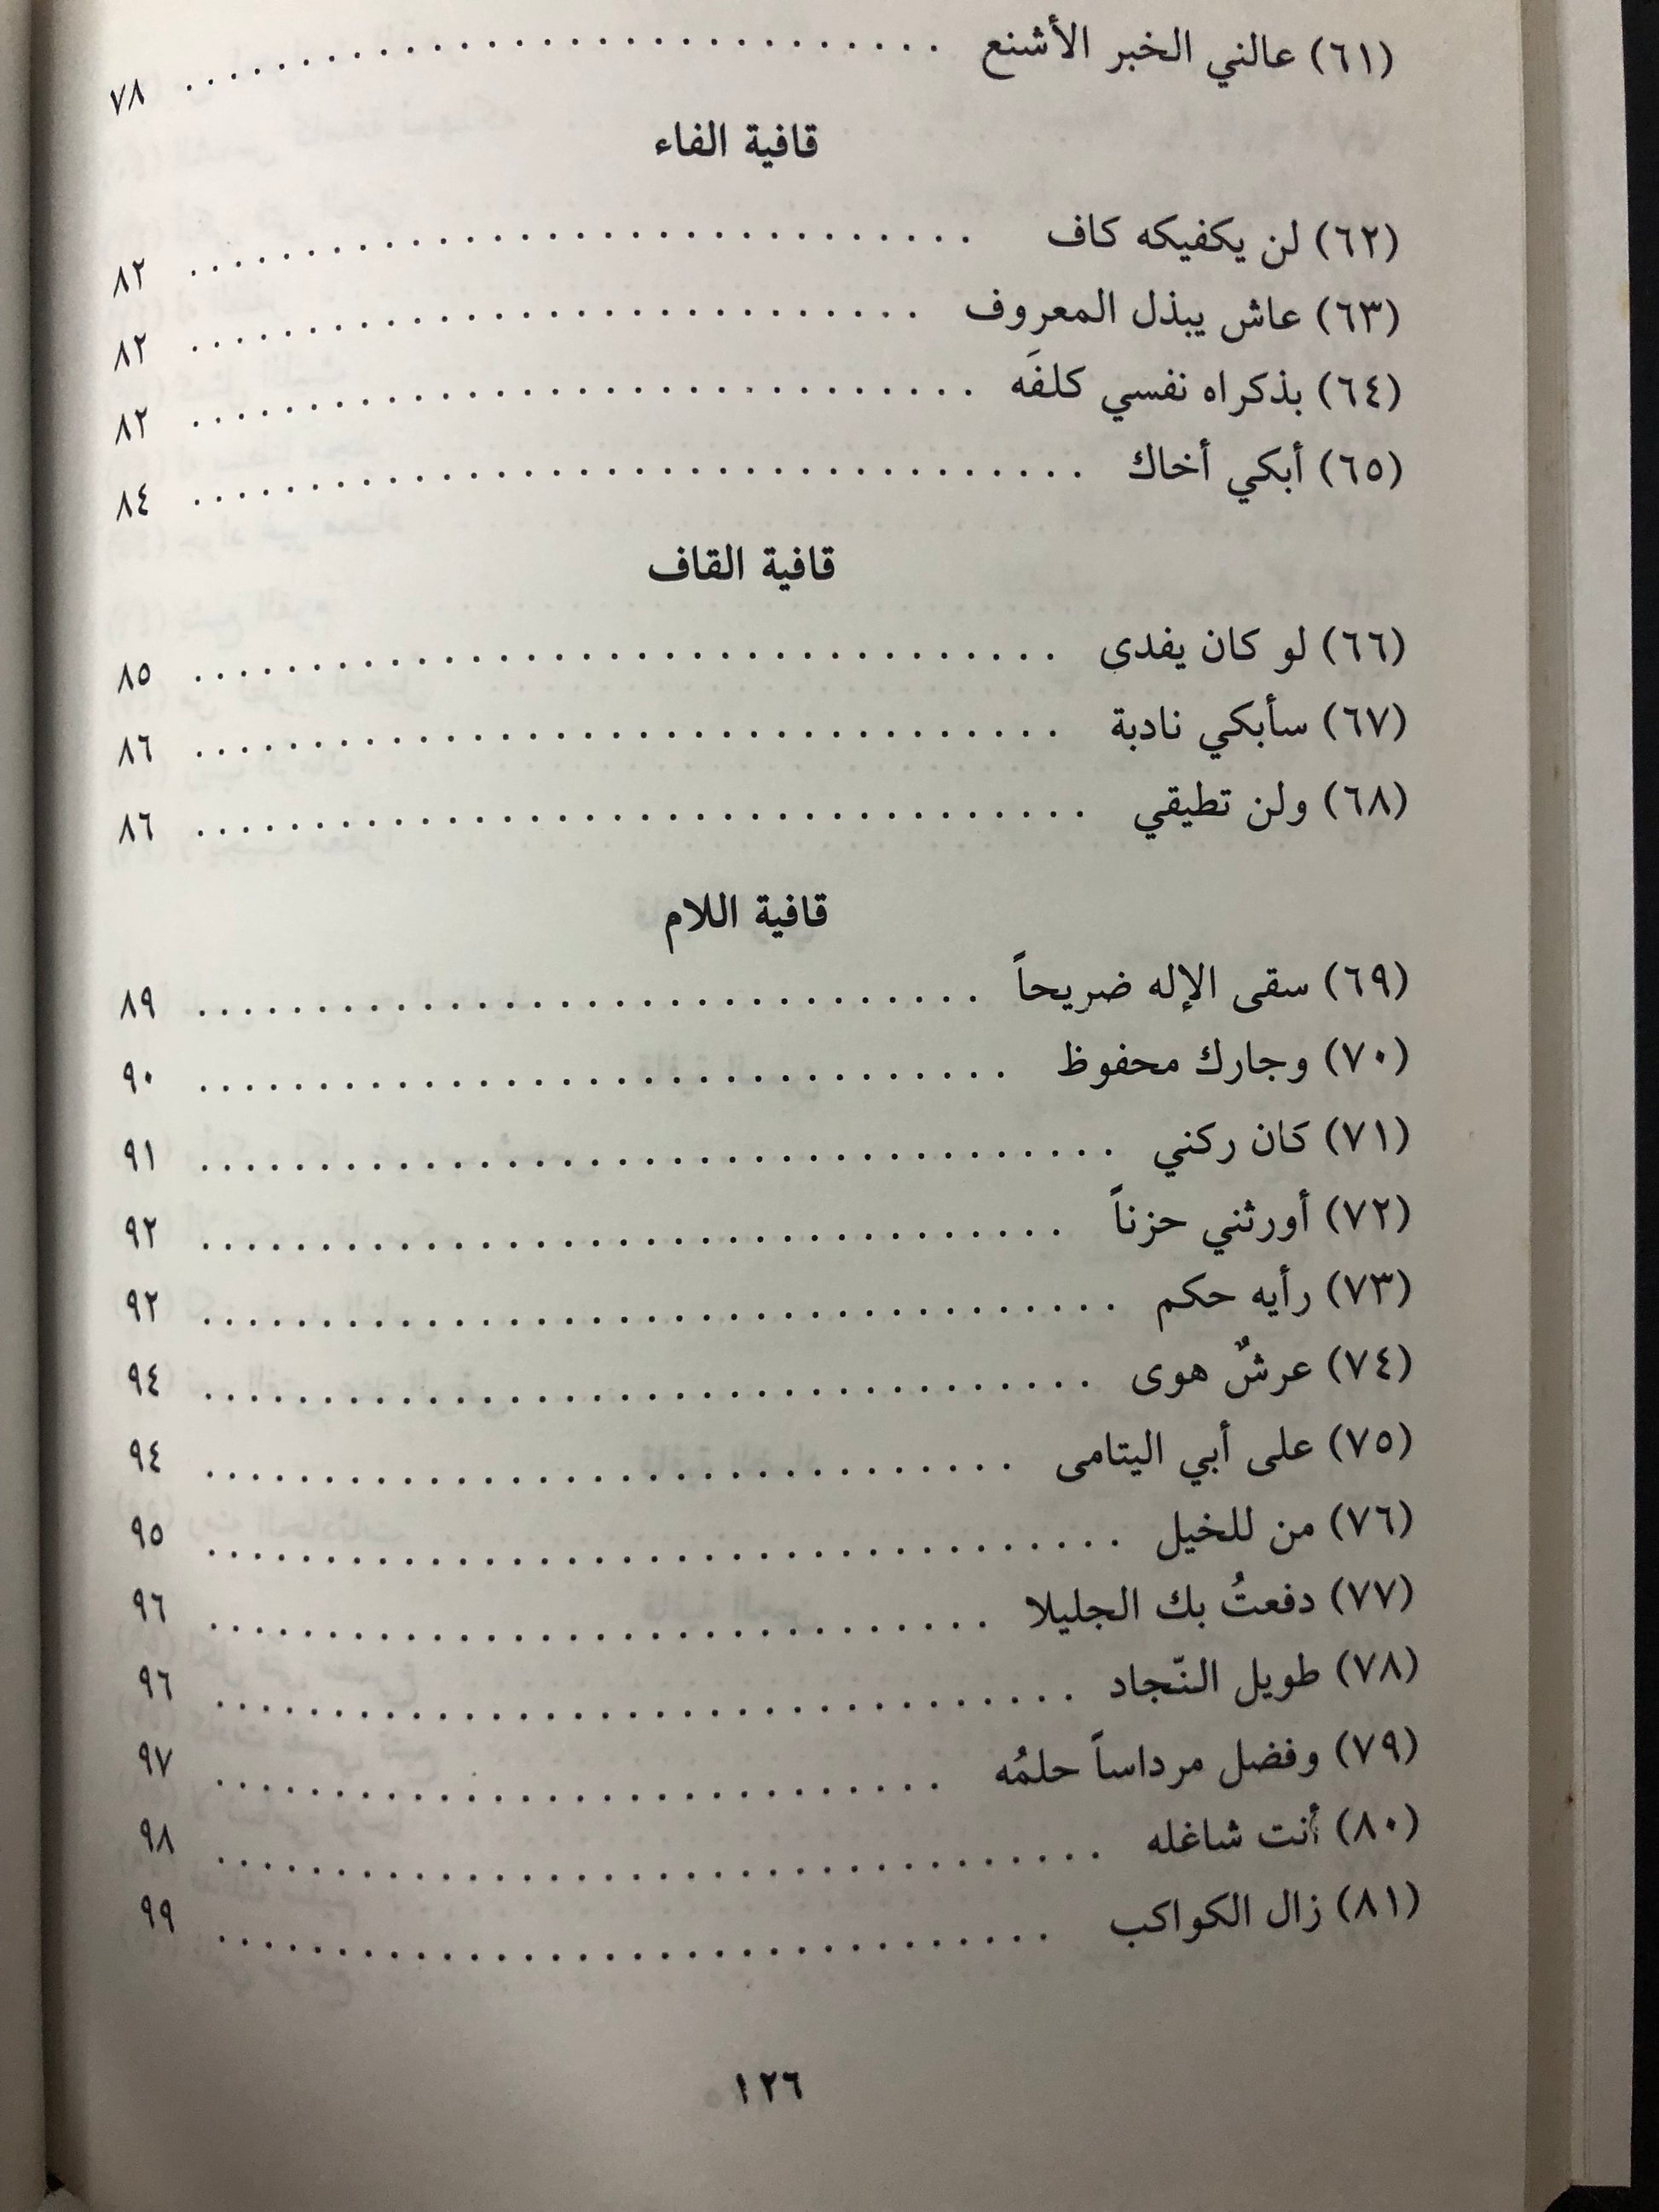 (٦١) عالني الخبر الأشنع ........................ ٧٨
قافية الفاء
(٦٢) لن يكفيكه كاف ........................ ٨٢
(٦٣) عاش يبذل المعروف ........................ ٨٢
(٦٤) بذكراه نفسي كلفَه ........................ ٨٢
(٦٥) أبكي أخاك ........................ ٨٤
قافية القاف
(٦٦) لو كان يفدى ........................ ٨٥
(٦٧) سأبكي نادبة ........................ ٨٦
(٦٨) ولن تطيقي ........................ ٨٦
قافية اللام
(٦٩) سقى الإله ضريحاً ........................ ٨٩
(٧٠) وجارك محفوظ ........................ ٩٠
(٧١) كان ركني ........................ ٩١
(٧٢) أورثني حزناً ........................ ٩٢
(٧٣) رأيه حكم ........................ ٩٢
(٧٤) عرشٌ هوى ........................ ٩٤
(٧٥) على أبي اليتامى ........................ ٩٤
(٧٦) من للخيل ........................ ٩٥
(٧٧) دفعتُ بك الجليلا ........................ ٩٦
(٧٨) طويل النّجاد ........................ ٩٦
(٧٩) وفضل مرداساً حلمُه ........................ ٩٧
(٨٠) أنت شاغله ........................ ٩٨
(٨١) زال الكواكب ........................ ٩٩
١٢٦